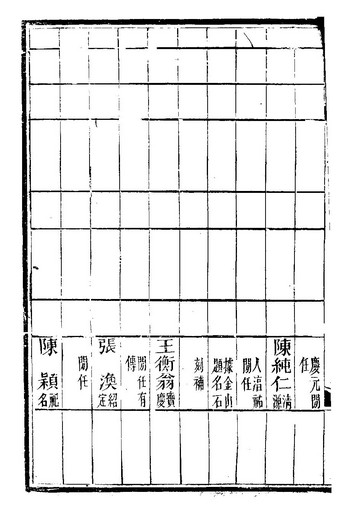 慶元間任
陳純仁清源
人湻祐間任
據金山題名石
刻補
王衡翁寶慶
間任有傳
張渙紹定
間任
陳名